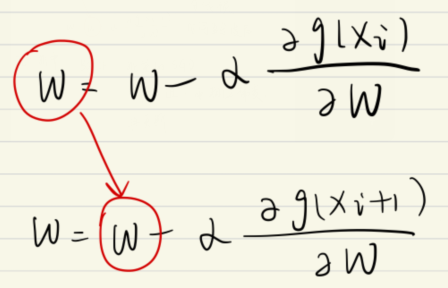 W = W - α ∂g(xi)/∂W
W = W - α ∂g(xi+1)/∂W